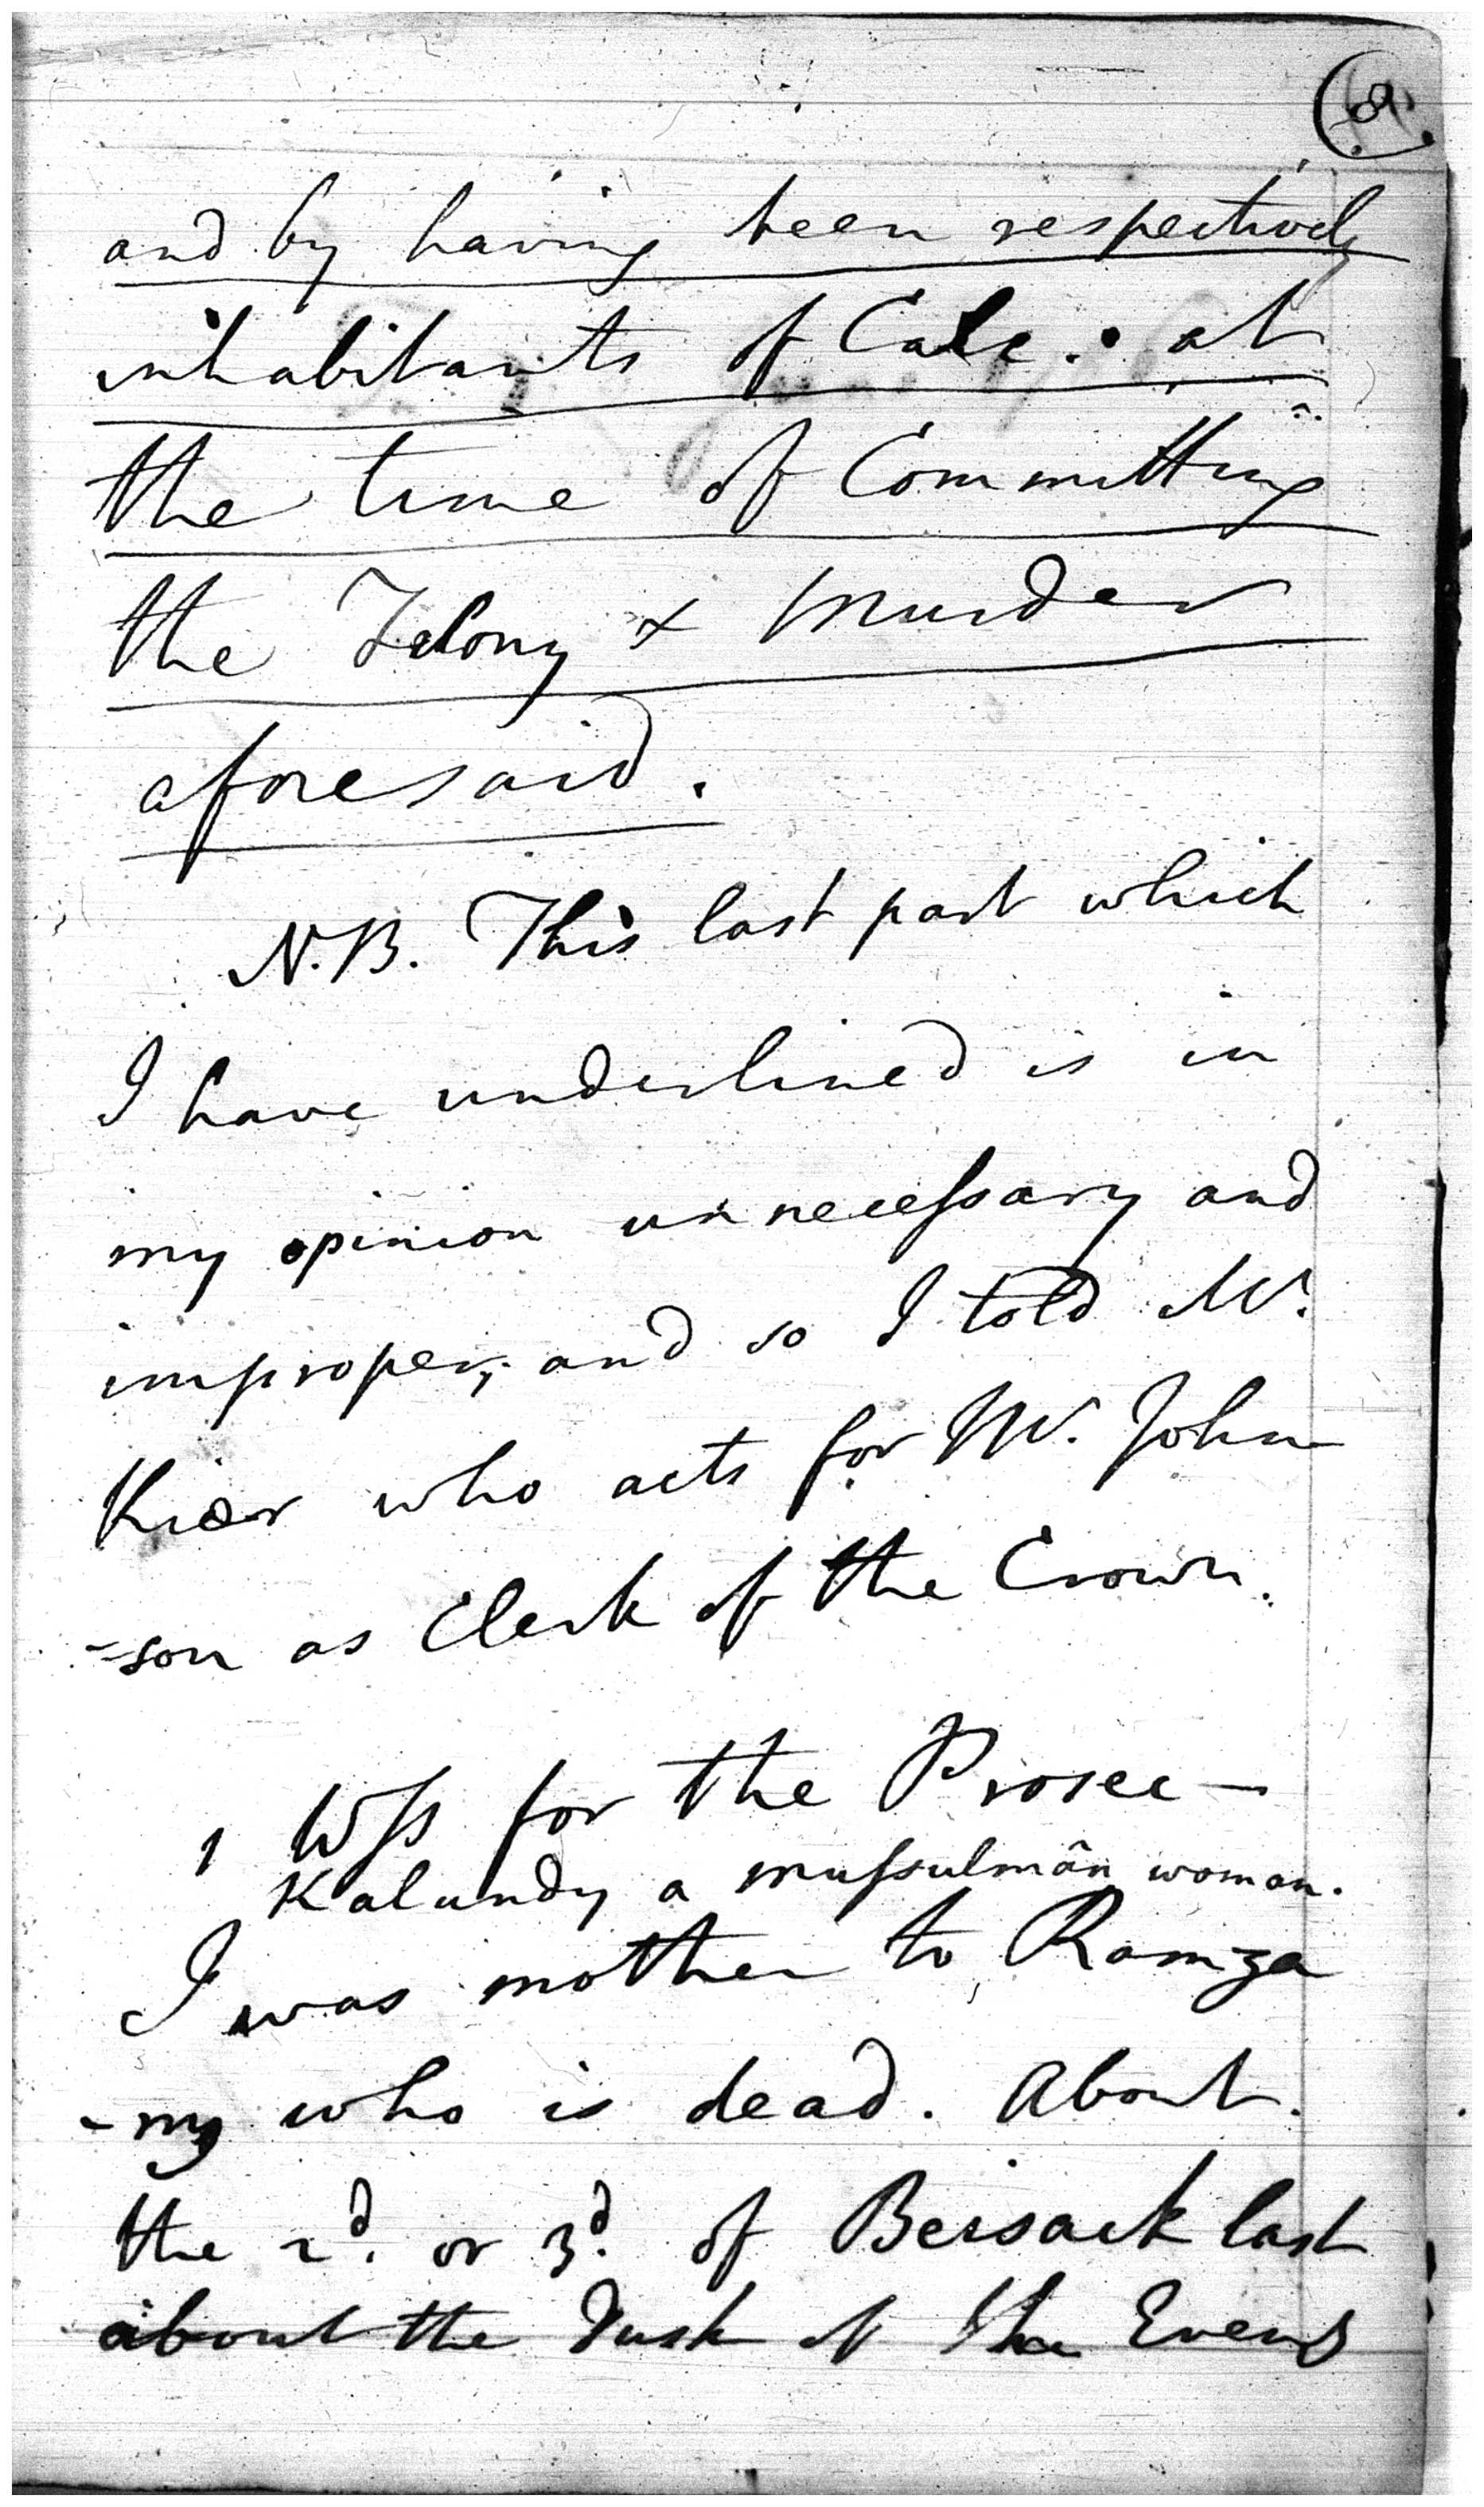 and by having been respectively
inhabitants of Calc: at
the time of Committing
the Felony & Murder
aforesaid.
N.B. This last part which
I have underlined is in
my opinion unnecessary and
improper; and so I told Mr.
Kier who acts for Mr. John
-son as Clerk of the Crown.
1 Wss for the Prosec—
Kalundy a mussulmân woman.
I was mother to Ramza
-ny who is dead. About
the 2d. or 3d. of Bersack last
about the Dusk of the Eveng